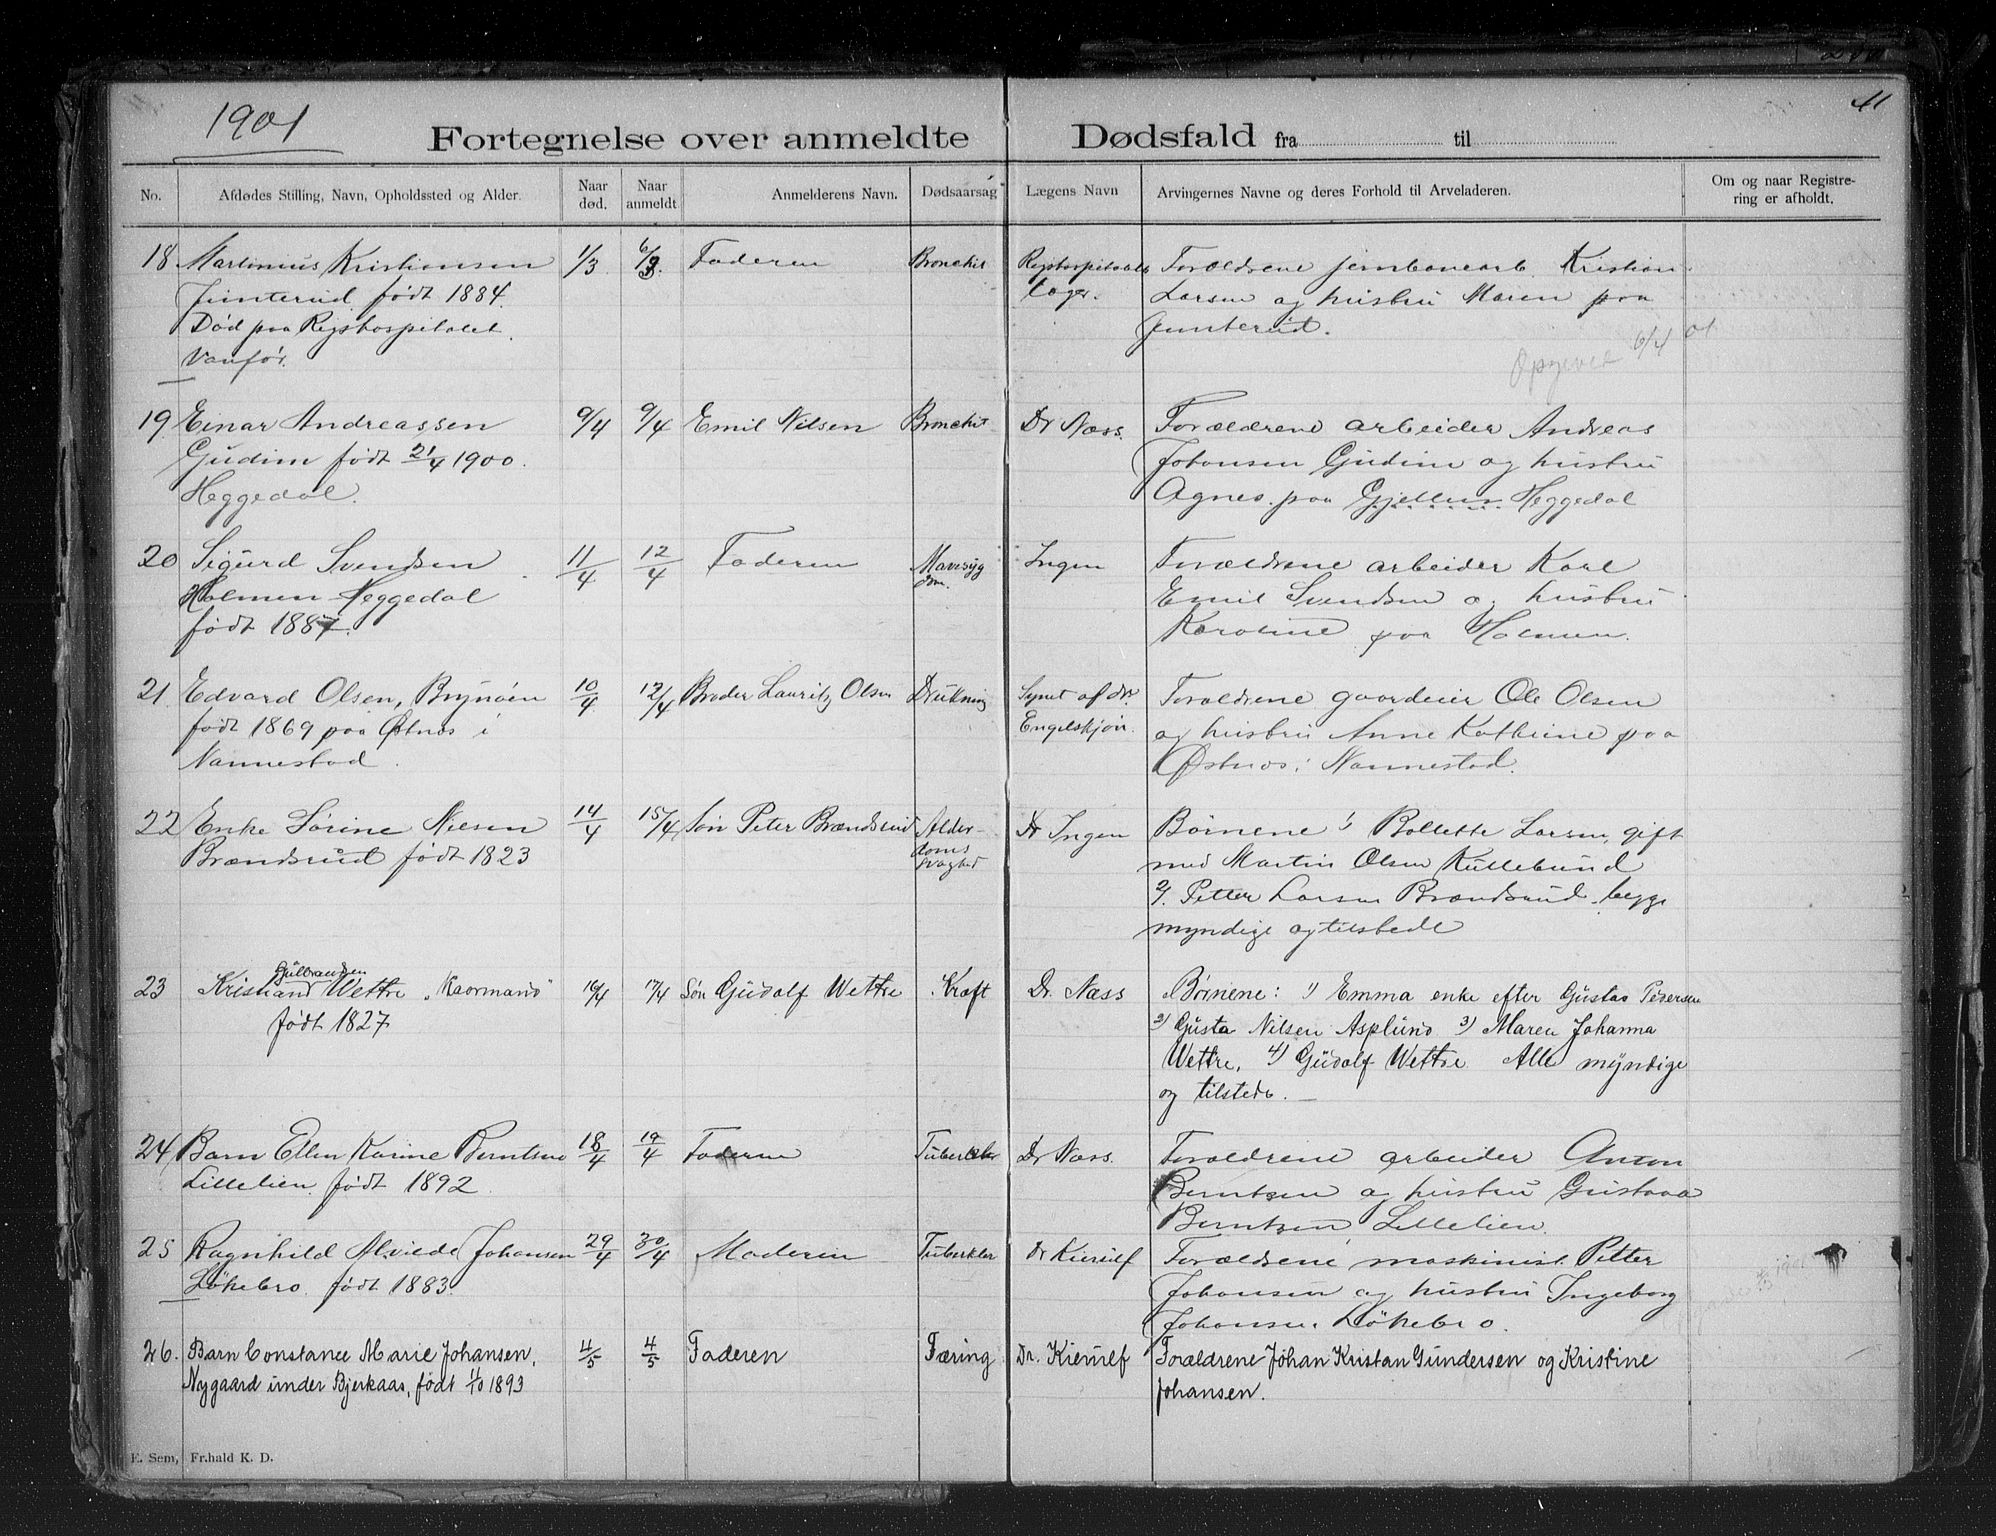 1901
11
Fortegnelse over anmeldte Dødsfald fra til
No.
Afdødes Stilling, Navn, Opholdssted og Alder.
Naar død.
Naar anmeldt.
Anmelderens Navn.
Dødsaarsag
Lægens Navn
Arvingernes Navne og deres Forhold til Arveladeren.
Om og naar Registre-
ring er afholdt.
18 Martinius Kristiansen 1/3 6/3 Faderen Bronchit Rigshospitalets Forældrene jernbanearb. Kristian
født 1884. læger. Larsen og hustru Maren paa
Død paa Rigshospitalet.
Vanfør.
Opgivet 6/4 01
19. Einar Andreassen 9/4 9/4 Emil Nilsen Bronchit Dr Næss. Forældrene arbeider Andreas
Gudim født 21/4 1900. Johansen Gudim og hustru
Heggedal. Agnes. paa Gjellum Heggedal
20 Sigurd Svendsen 11/4 12/4 Faderen Mavesyg Ingen Forældrene arbeider Karl
Holmen Heggedal dm. Emil Svendsen og hustru
født 1887. Karoline paa Holmen.
21. Edvard Olsen, Brynøen 10/4 12/4 Broder Lauritz Olsen Drukning Synet af dr. Forældrene gaardeier Ole Olsen
født 1869 paa Østnes i Engelskjøn. og hustru Anne Kathrine paa
Nannestad. Østnes i Nannestad.
22 Enke Sørine Nilsen 14/4 15/4 Søn Peter Brændsrud Alder- Ingen Børnene 1) Bollette Larsen, gift
Brændsrud født 1823 doms med Martin Olsen Kullebund
svaghed 2). Petter Larsen Brændsrud. begge
myndige og tilstede
23 Kristiand Gulbrandsen Wettre "Kaarmand" 16/4 17/4 Søn Gudolf Wettre Kræft Dr. Næss Børnene: 1) Emma enke efter Gustav Pedersen
født 1827 2) Gusta Nilsen Asplund 3) Maren Johanna
Wettre, 4) Gudolf Wettre Alle myndige
og tilstede.
24 Barn Ellen Karine Berntsen 18/4 19/4 Faderen Tuberkler Dr Næss. Forældrene arbeider Anton
Lillelien. født 1892. Berntsen og hustru Gustava
Berntsen Lillelien.
25 Ragnhild Alvilde Johansen 29/4 30/4 Moderen Tuberkler Dr Kierulf Forældrene maskinist Petter
Løkebro. født 1883. Johansen og hustru Ingeborg
Johansen Løkebro.
26. Barn Constance Marie Johansen, 4/5 4/5 Faderen Tæring Dr. Kierulf Forældrene Johan Kristan Gundersen og Kristine
Nygaard under Bjerkaas, født 1/10 1893 Johansen.
E. Sem, Fr.hald K. D.